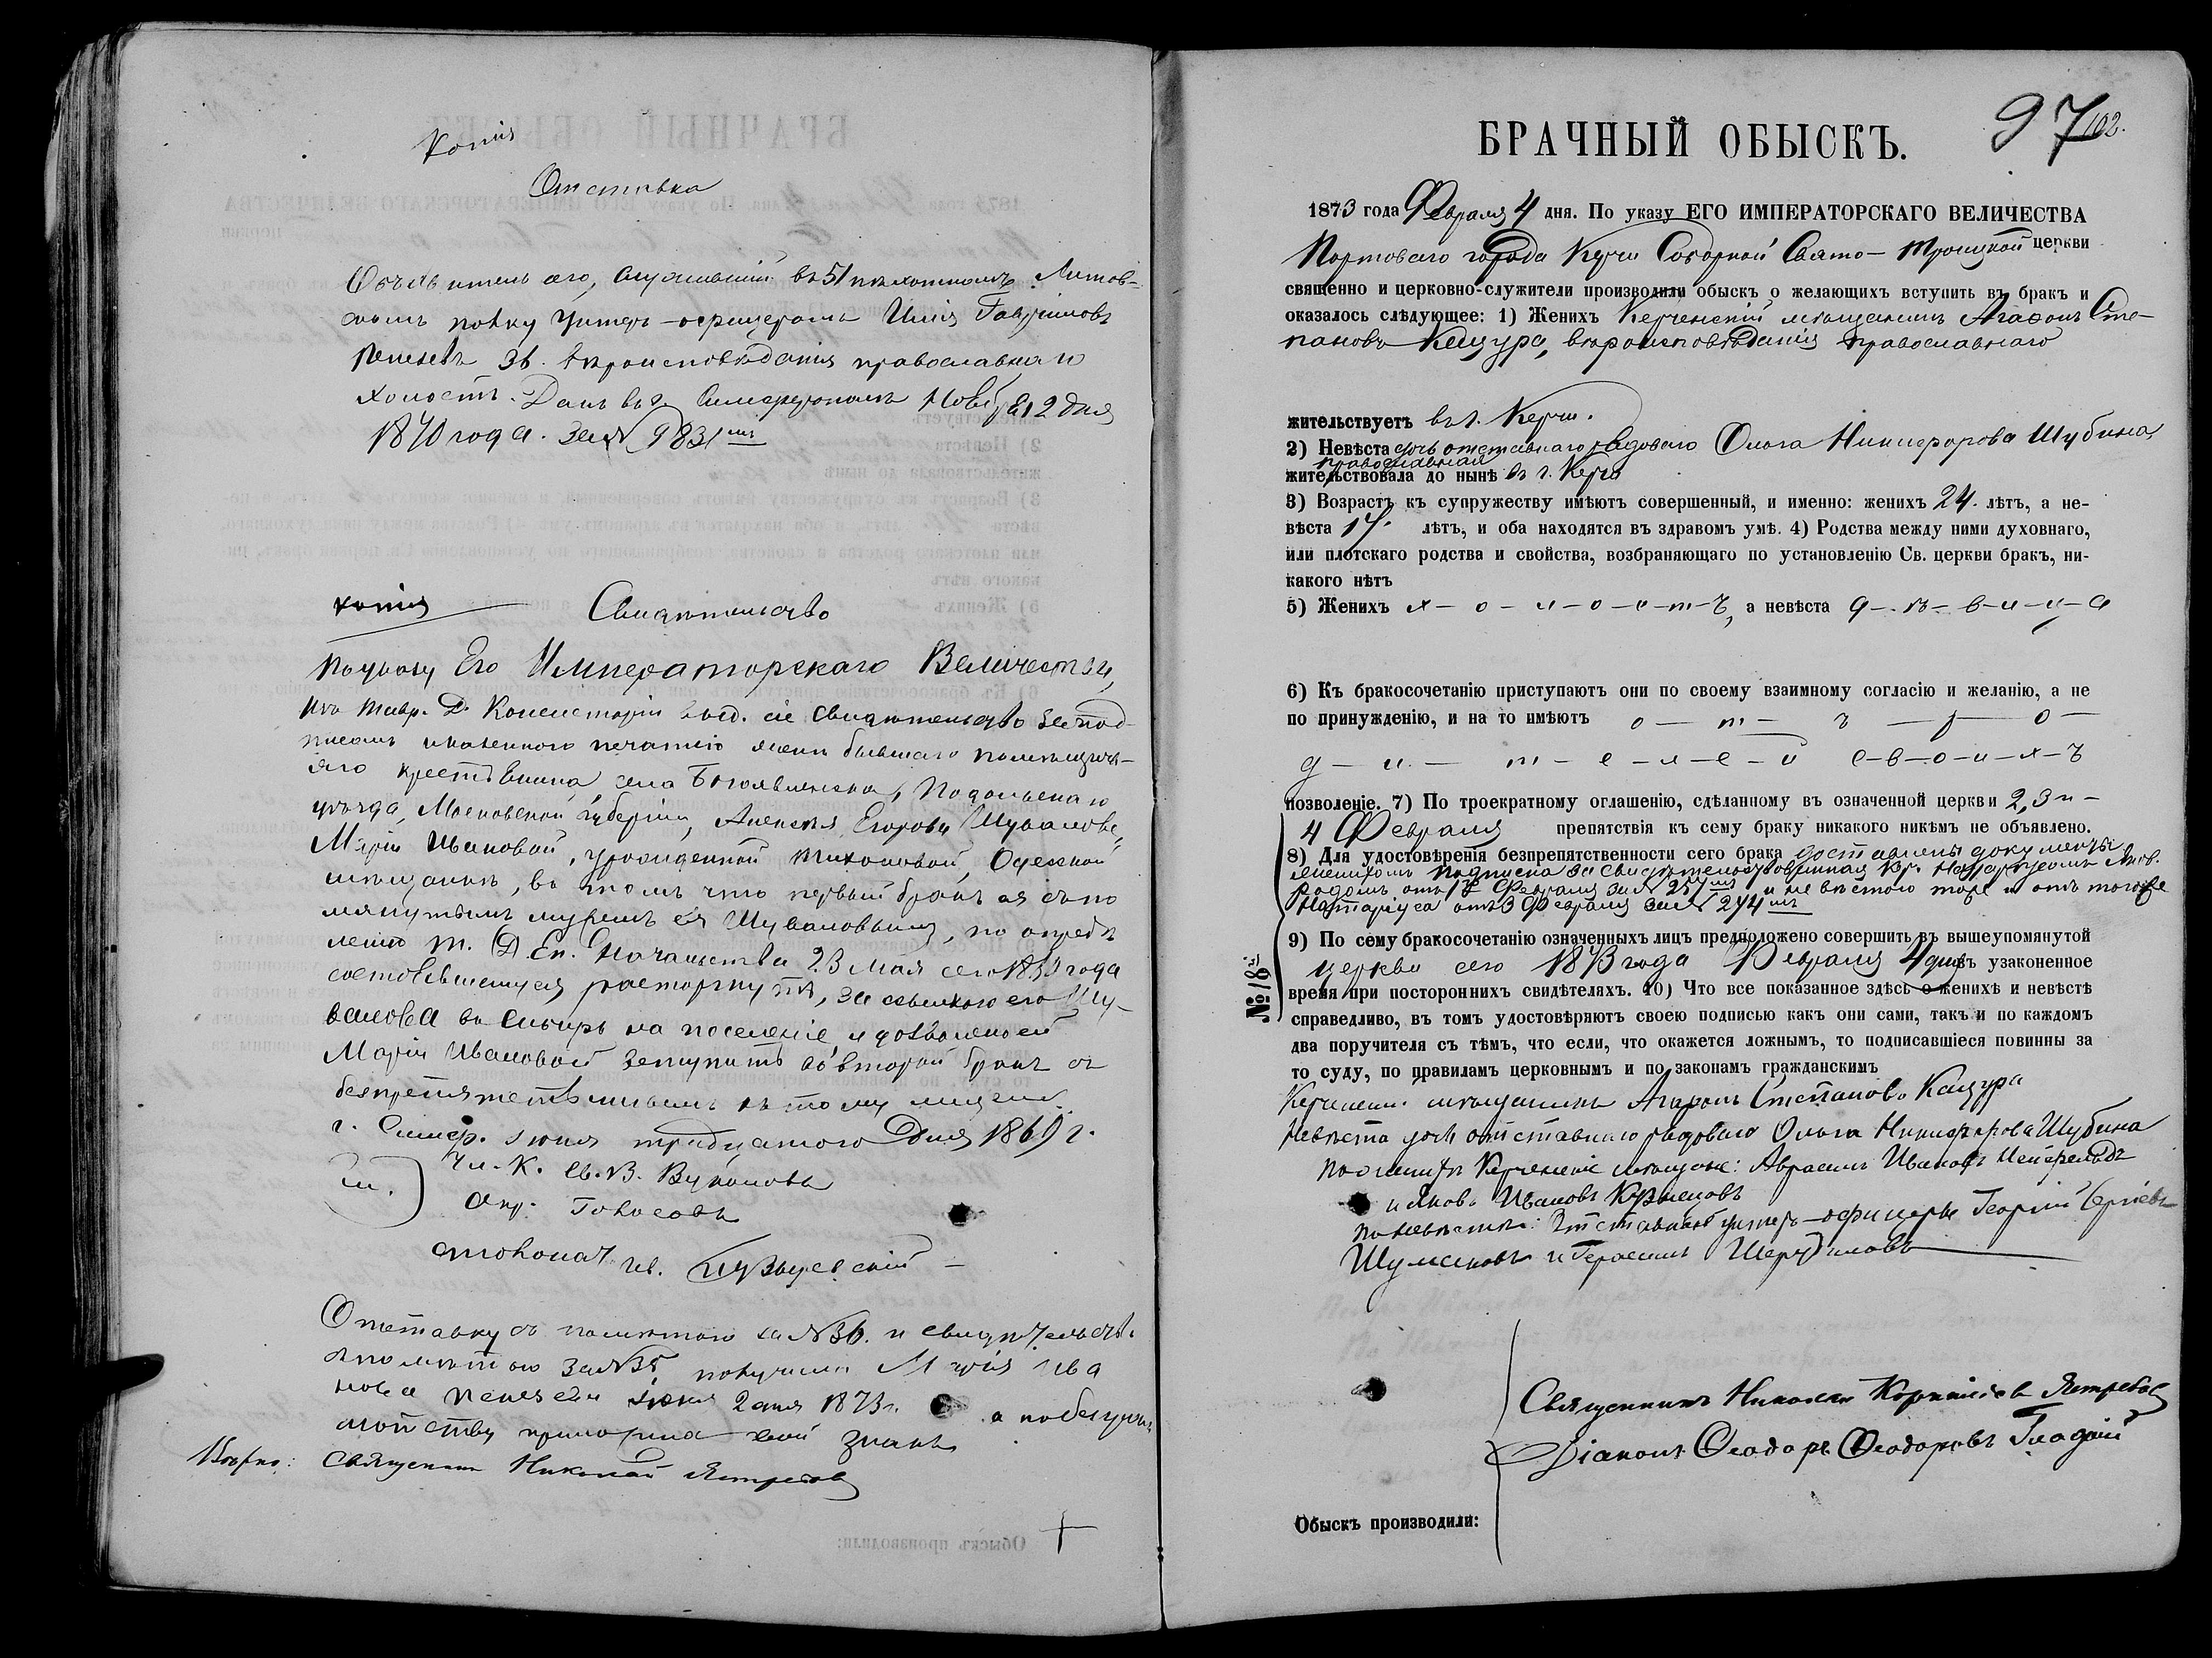 Копія
Отставка
Объявитель сего, служившій въ 51 пѣхотномъ Литов-
скомъ полку унтеръ-офицеромъ Илія Гавриловъ
36. вѣроисповѣданія православнаго
холостъ. Данъ въ г. Симферополѣ Ноября 2 дня
1870 года. за № 9831мъ
Копія Свидѣтельство
По указу Его Императорскаго Величества,
Изъ Тавр. Д. Консисторіи выд. сіе свидѣтельство за под-
писомъ и казенною печатію женѣ бывшаго помѣщичь-
яго крестьянина, села Богоявленска, Подольскаго
уѣзда, Московской губерніи, Алексѣя Егорова Шувалова,
Маріи Ивановой, урожденной Тихоновой, Одесской
мѣщанкѣ, въ томъ что первый бракъ ея съ по
мянутымъ мужемъ ея Шуваловымъ, по опредѣ
ленію Т. Д. Еп. Начальства 23 Мая сего года
состоявшемуся, расторгнутъ, за ссылкою его Шу-
валова въ Сибирь на поселеніе, и дозволено ей
Маріи Ивановой вступить во второй бракъ съ
безпрепятственнымъ къ тому лицемъ.
г. Симф. Іюня тридцатого дня 1869 г.
Чл. К. Св. В.
Голосовъ
Столонач.
Отставку съ помѣтою за № 36. и свидѣтельство
съ помѣтою за № 35 получила Марія Ива
нова Іюня 2 дня 1873 г. а по безграм
отству приложила свой знакъ
Вѣрно: Священникъ Николай Ястребовъ
+
БРАЧНЫЙ ОБЫСКЪ.
97
102.
1873 года Февраля 4 дня. По указу ЕГО ИМПЕРАТОРСКАГО ВЕЛИЧЕСТВА
Портоваго города Керчи Соборной Свято-Троицкой церкви
священно и церковно-служители производили обыскъ о желающихъ вступить въ бракъ и
оказалось слѣдующее: 1) Женихъ Керченскій мѣщанинъ Агафонъ Сте-
пановъ Кацура, вѣроисповѣданія православнаго
жительствуетъ въ г. Керчи.
2) Невѣста дочь отставнаго рядоваго Ольга Никифорова Шубина,
православная
жительствовала до нынѣ въ г. Керчи
3) Возрастъ къ супружеству имѣютъ совершенный, и именно: женихъ 24. лѣтъ, а не-
вѣста 17. лѣтъ, и оба находятся въ здравомъ умѣ. 4) Родства между ними духовнаго,
или плотскаго родства и свойства, возбраняющаго по установленію Св. церкви бракъ, ни-
какого нѣтъ
5) Женихъ х-о-л-о-с-т-ъ, а невѣста д-ѣ-в-и-ц-а
6) Къ бракосочетанію приступаютъ они по своему взаимному согласію и желанію, а не
по принужденію, и на то имѣютъ о-т-ъ р-о-
д-и-т-е-л-е-й с-в-о-и-х-ъ
позволеніе. 7) По троекратному оглашенію, сдѣланному въ означенной церкви 2, 3 и-
4 Февраля препятствія къ сему браку никакого никѣмъ не объявлено.
8) Для удостовѣренія безпрепятственности сего брака доставлены документы
женихомъ подписка за свидѣтельствованная Кр. Нотаріусомъ
отъ Февраля за № 257мъ и невѣстою тоже и отъ того же
Нотаріуса отъ 3 Февраля за № 274мъ
№ 18й
9) По сему бракосочетанію означенныхъ лицъ предположено совершить въ вышеупомянутой
церкви сего 1873 года Февраля 4 дня въ узаконенное
время при постороннихъ свидѣтеляхъ. 10) Что все показанное здѣсь о женихѣ и невѣстѣ
справедливо, въ томъ удостовѣряютъ своею подписью какъ они сами, такъ и по каждомъ
два поручителя съ тѣмъ, что если, что окажется ложнымъ, то подписавшіеся повинны за
то суду, по правиламъ церковнымъ и по законамъ гражданскимъ
Керченскій мѣщанинъ Агафонъ Степановъ Кацура
Невѣста дочь отставнаго рядоваго Ольга Никифорова Шубина
По женихѣ Керченскіе мѣщане: Авраамъ Ивановъ
и Яковъ Ивановъ Кузнецовъ
По невѣстѣ: Отставные унтеръ-офицеры Георгій Сергіевъ
Шумаковъ и Герасимъ Шерудиловъ
Священникъ Николай Корниліевъ Ястребовъ
Діаконъ Ѳеодоръ Ѳеодоровъ Гладкій
Обыскъ производили: